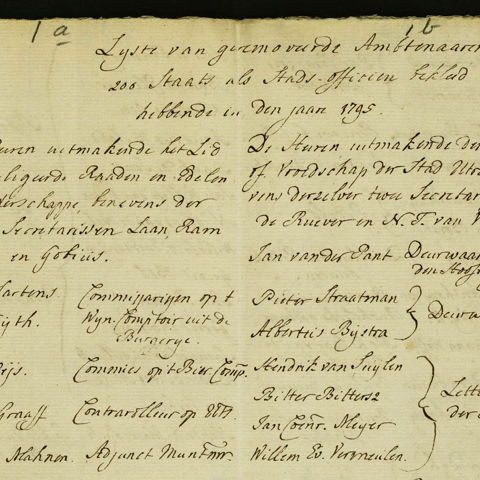 1 a
1 b
Lyste van geremoveerde Ambtenaaren
zoo Staats als Stads-officien bekleed
hebbende in den jaare 1795.
eeren uitmakende het Lid
eligeerde Raaden en Edelen
derschappe, benevens der
Secretarissen Laan, Ram
en Gobius.
Martens. Commissarissen op 't
Wyn-Comptoir uit de
Burgerye.
Commies op 't Bier Comp.
Graaff Contrarolleur op
Mahnen. Adjunct Muntmr.
De Heeren uitmakende de
of Vroedschap der Stad Utre
vens derzelver twee Secretar
de Ruever en N. T. van
Jan van der Pant Deurwaar
den Hoofs
Pieter Straatman
Albertus Bijstra Deurwa
Hendrik van Suylen
Bitter Bitters
Jan Coenr. Meyer
Willem Ev. Vermeulen.
Lette
der